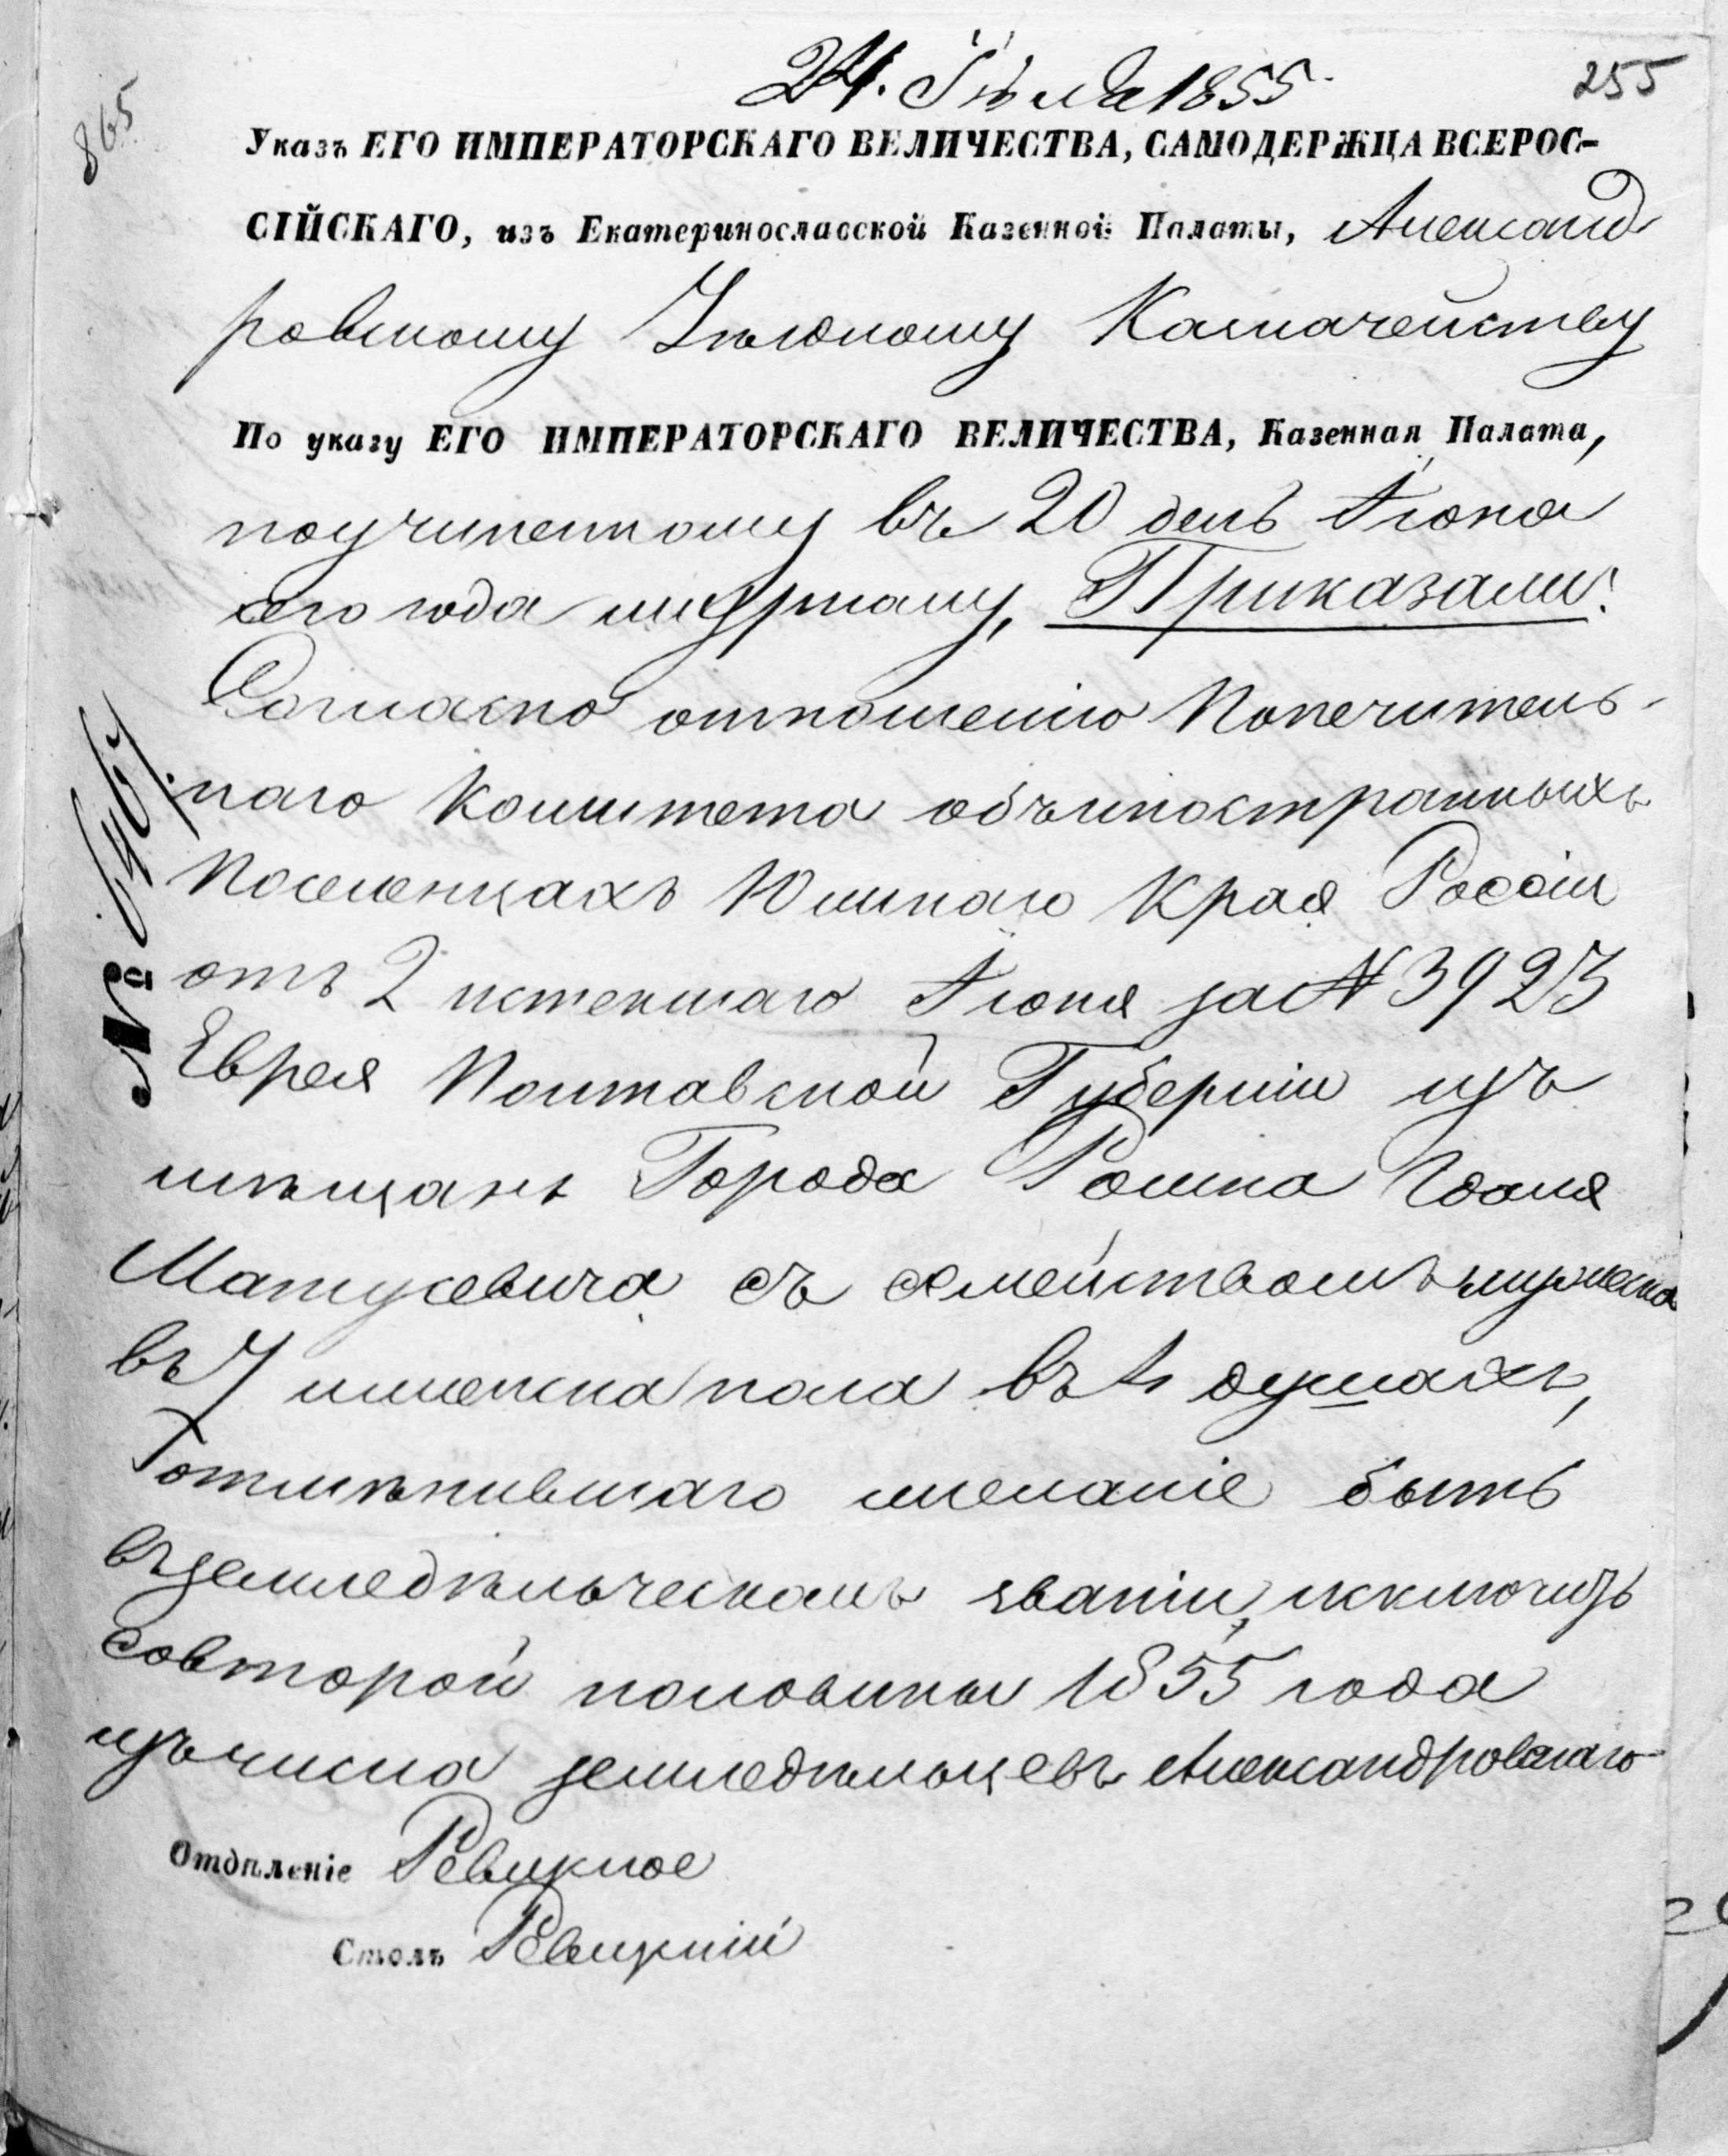 24. Іюля 1855
255
865
Указъ ЕГО ИМПЕРАТОРСКАГО ВЕЛИЧЕСТВА, САМОДЕРЖЦА ВСЕРОС-
СІЙСКАГО, изъ Екатеринославской Казенной Палаты, Александ
ровскому Уѣздному Казначейству
По указу ЕГО ИМПЕРАТОРСКАГО ВЕЛИЧЕСТВА, Казенная Палата,
поучиненному въ 20 день Іюня
сего года журналу, Приказали:
Согласно отношенію Попечитель-
наго Комитета объиностранныхъ
Поселенцахъ Южнаго Края Россіи
отъ 2 истекшаго Іюня за № 3923
Еврея Полтавской Губерніи изъ
мѣщанъ Города Ромна
Матусевича съ семействомъ мужеска
въ 7 женска пола въ 4 душахъ,
отмѣнившаго желаніе быть
въземледѣльческомъ званіи, исключить
совторой половины 1855 года
изъчисла земледѣльцевъ Александровскаго
Отдѣленіе Ревизское
Столъ Ревизскій
№